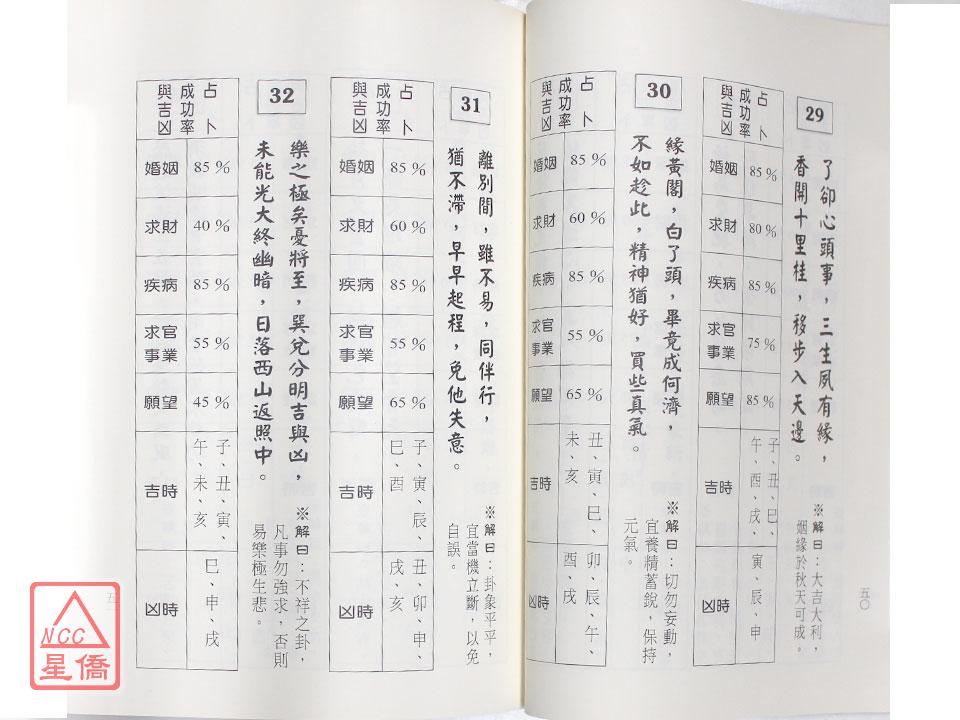 五〇
29
了卻心頭事，三生夙有緣，
香開十里桂，移步入天邊。
※解曰：大吉大利，
姻緣於秋天可成。
占卜
成功率
與吉凶
婚姻 85%
求財 80%
疾病 85%
求官事業 75%
願望 85%
吉時 子、丑、巳、午、酉、戌、
凶時 寅、辰、申
30
緣黃閣，白了頭，畢竟成何濟，
不如趁此，精神猶好，買些真氣。
※解曰：切勿妄動，
宜養精蓄銳，保持
元氣。
占卜
成功率
與吉凶
婚姻 85%
求財 60%
疾病 85%
求官事業 55%
願望 65%
吉時 丑、寅、巳、未、亥
凶時 卯、辰、午、酉、戌
31
離別間，雖不易，同伴行，
猶不滯，早早起程，免他失意。
※解曰：卦象平平，
宜當機立斷，以免
自誤。
占卜
成功率
與吉凶
婚姻 85%
求財 60%
疾病 85%
求官事業 55%
願望 65%
吉時 子、寅、辰、巳、酉
凶時 丑、卯、申、戌、亥
32
樂之極矣憂將至，巽兌分明吉與凶，
未能光大終幽暗，日落西山返照中。
※解曰：不祥之卦，
凡事勿強求，否則
易樂極生悲。
占卜
成功率
與吉凶
婚姻 85%
求財 40%
疾病 85%
求官事業 55%
願望 45%
吉時 子、丑、寅、午、未、亥
凶時 巳、申、戌
NCC
星僑